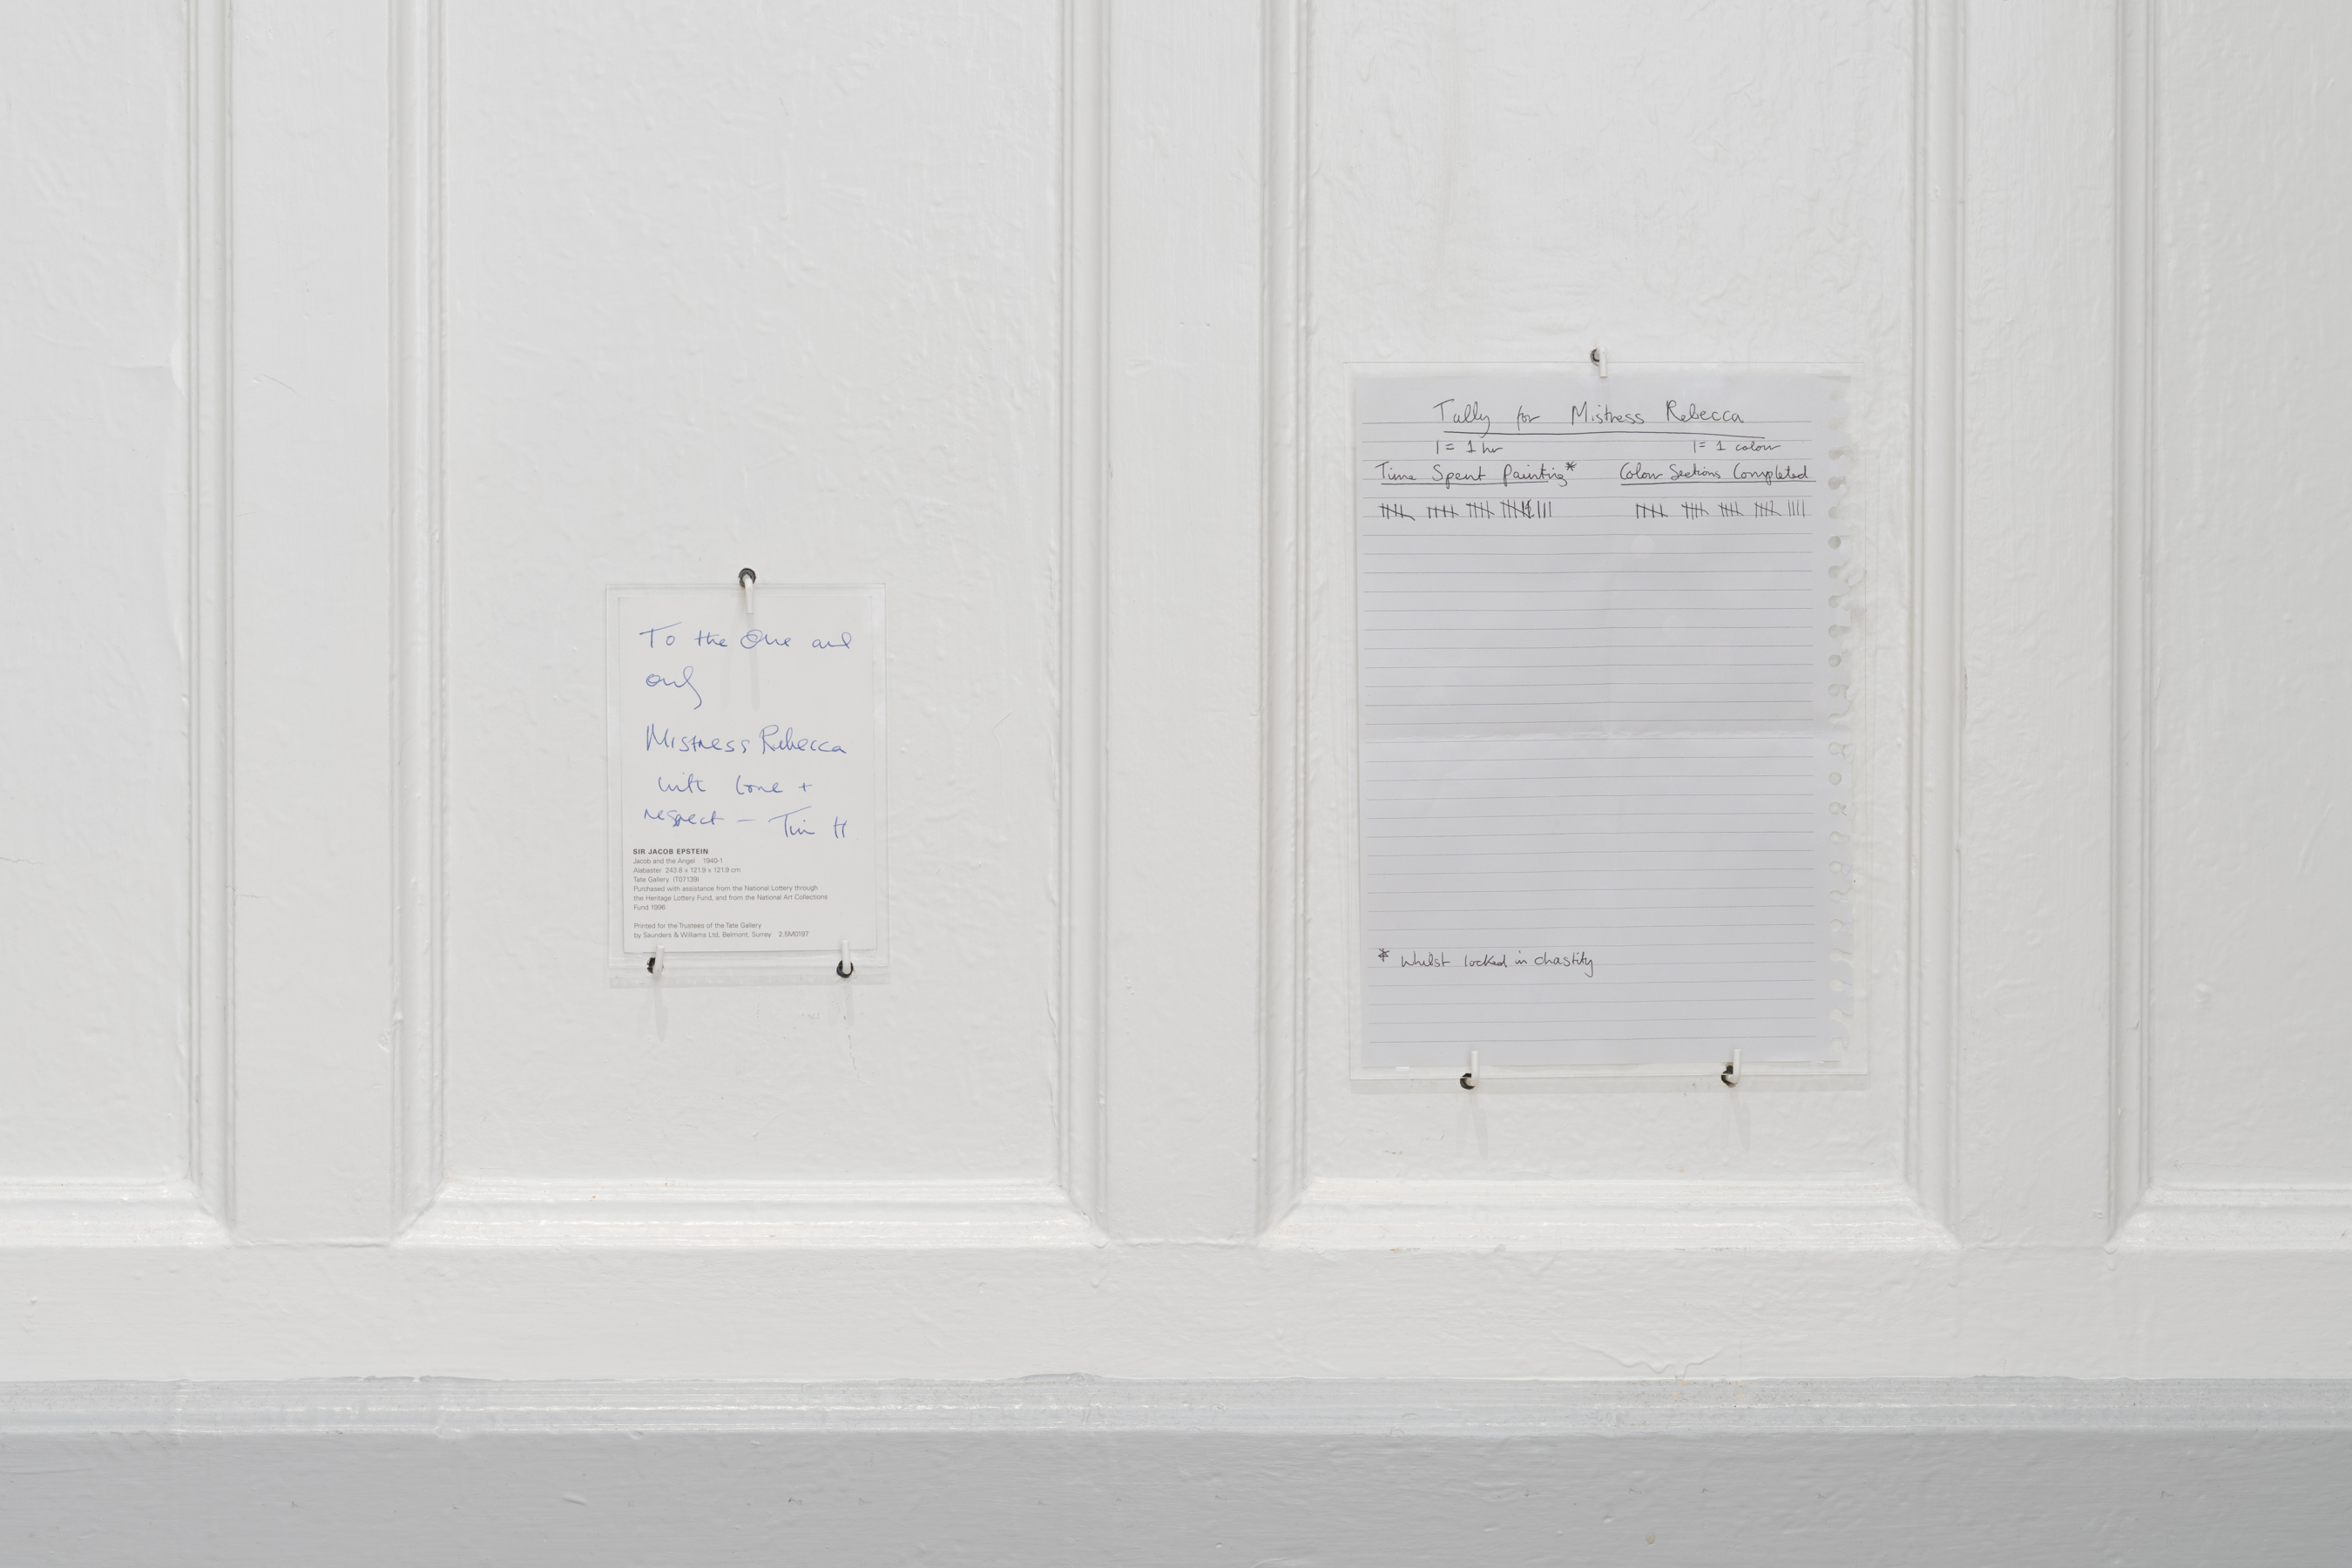 To the One and
only
Mistress Rebecca
with love +
respect — Tim H
SIR JACOB EPSTEIN
Jacob and the Angel 1940-1
Alabaster 243.8 x 121.9 x 121.9 cm
Tate Gallery (T07139)
Purchased with assistance from the National Lottery through
the Heritage Lottery Fund, and from the National Art Collections
Fund 1996
Printed for the Trustees of the Tate Gallery
by Saunders & Williams Ltd, Belmont, Surrey 2.5M0197
Tally for Mistress Rebecca
| = 1 hr | = 1 colour
Time Spent Painting* Colour Sections Completed
* Whilst locked in chastity